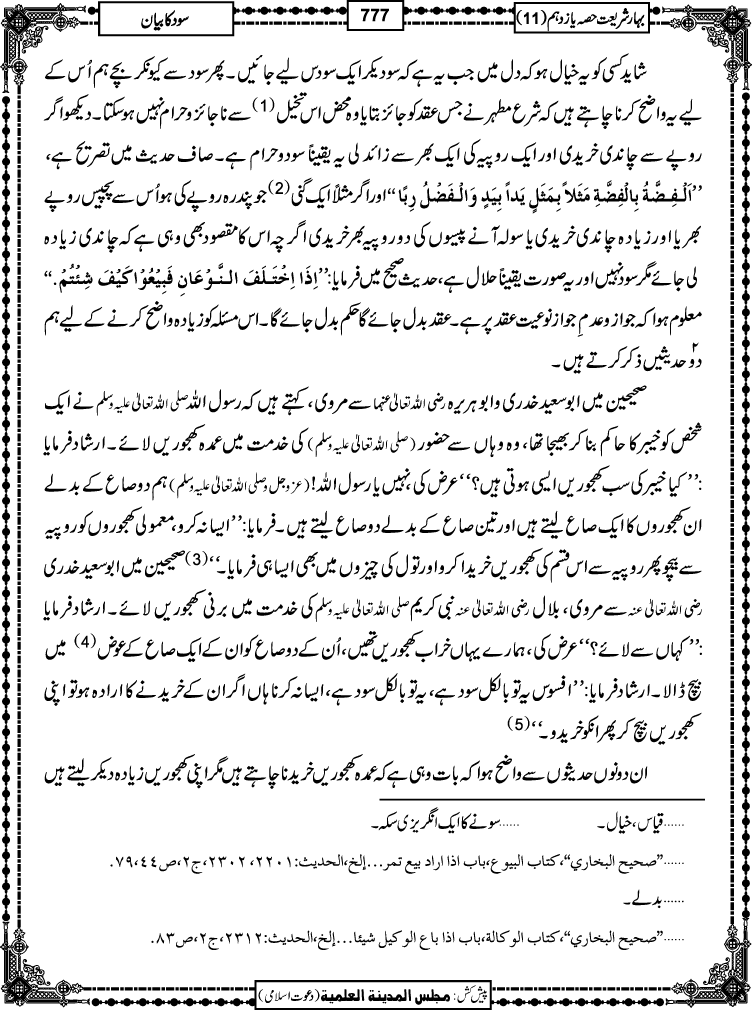 بہار شریعت حصہ یازدہم (11)
777
سود کا بیان
شاید کسی کو یہ خیال ہو کہ دل میں جب یہ ہے کہ سو دیکر ایک سو دس لیے جائیں۔ پھر سود سے کیونکر بچے ہم اُس کے
لیے یہ واضح کرنا چاہتے ہیں کہ شرع مطہر نے جس عقد کو جائز بتایا وہ محض اس تخیل (1) سے ناجائز و حرام نہیں ہو سکتا۔ دیکھو اگر
روپے سے چاندی خریدی اور ایک روپیہ کی ایک بھر سے زائد لی یہ یقیناً سود و حرام ہے۔ صاف حدیث میں تصریح ہے،
’’اَلْفِضَّةُ بِالْفِضَّةِ مَثَلاً بِمَثَلٍ یَداً بِیَدٍ وَالْفَضْلُ رِبًا‘‘ اور اگر مثلاً ایک گنی (2) جو پندرہ روپے کی ہو اُس سے پچیس روپے
بھر یا اور زیادہ چاندی خریدی یا سولہ آنے پیسوں کی دو روپیہ بھر خریدی اگرچہ اس کا مقصود بھی وہی ہے کہ چاندی زیادہ
لی جائے مگر سود نہیں اور یہ صورت یقیناً حلال ہے، حدیث صحیح میں فرمایا: ’’اِذَا اخْتَلَفَ النَّوْعَانِ فَبِیْعُوْا کَیْفَ شِئْتُمْ.‘‘
معلوم ہوا کہ جواز و عدمِ جواز نوعیت عقد پر ہے۔ عقد بدل جائے گا حکم بدل جائے گا۔ اس مسئلہ کو زیادہ واضح کرنے کے لیے ہم
دو۲ حدیثیں ذکر کرتے ہیں۔
صحیحین میں ابوسعید خدری و ابوہریرہ رضی اللہ تعالیٰ عنہما سے مروی، کہتے ہیں کہ رسول اللہ صلی اللہ تعالیٰ علیہ وسلم نے ایک
شخص کو خیبر کا حاکم بنا کر بھیجا تھا، وہ وہاں سے حضور (صلی اللہ تعالیٰ علیہ وسلم) کی خدمت میں عمدہ کھجوریں لائے۔ ارشاد فرمایا
:’’کیا خیبر کی سب کھجوریں ایسی ہوتی ہیں؟‘‘ عرض کی، نہیں یا رسول اللہ! (عزوجل وصلی اللہ تعالیٰ علیہ وسلم) ہم دو صاع کے بدلے
ان کھجوروں کا ایک صاع لیتے ہیں اور تین صاع کے بدلے دو صاع لیتے ہیں۔ فرمایا: ’’ایسا نہ کرو، معمولی کھجوروں کو روپیہ
سے بیچو پھر روپیہ سے اس قسم کی کھجوریں خریدا کرو اور تول کی چیزوں میں بھی ایسا ہی فرمایا۔‘‘ (3) صحیحین میں ابوسعید خدری
رضی اللہ تعالیٰ عنہ سے مروی، بلال رضی اللہ تعالیٰ عنہ نبی کریم صلی اللہ تعالیٰ علیہ وسلم کی خدمت میں برنی کھجوریں لائے۔ ارشاد فرمایا
:’’کہاں سے لائے؟‘‘ عرض کی، ہمارے یہاں خراب کھجوریں تھیں، اُن کے دو صاع کو ان کے ایک صاع کے عوض (4) میں
بیچ ڈالا۔ ارشاد فرمایا: ’’افسوس یہ تو بالکل سود ہے، یہ تو بالکل سود ہے، ایسا نہ کرنا ہاں اگر ان کے خریدنے کا ارادہ ہو تو اپنی
کھجوریں بیچ کر پھر انکو خریدو۔‘‘ (5)
ان دونوں حدیثوں سے واضح ہوا کہ بات وہی ہے کہ عمدہ کھجوریں خریدنا چاہتے ہیں مگر اپنی کھجوریں زیادہ دیکر لیتے ہیں
......قیاس، خیال۔ ......سونے کا ایک انگریزی سکہ۔
......’’صحیح البخاري‘‘، کتاب البیوع، باب اذا اراد بیع تمر...إلخ، الحدیث: ۲۲۰۱، ۲۳۰۲، ج۲، ص۴۴، ۷۹.
......بدلے۔
......’’صحیح البخاري‘‘، کتاب الوکالة، باب اذا باع الوکیل شیئا...إلخ، الحدیث: ۲۳۱۲، ج۲، ص۸۳.
پیش کش: مجلس المدینة العلمیة (دعوت اسلامی)